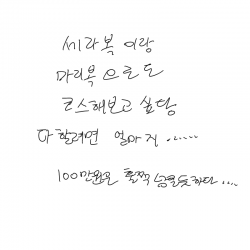 세라복 이랑
마리복 으로도
코스해보고 싶당
다 할려면 얼마 지 ......
100만원은 훌쩍 넘을듯하다 ....